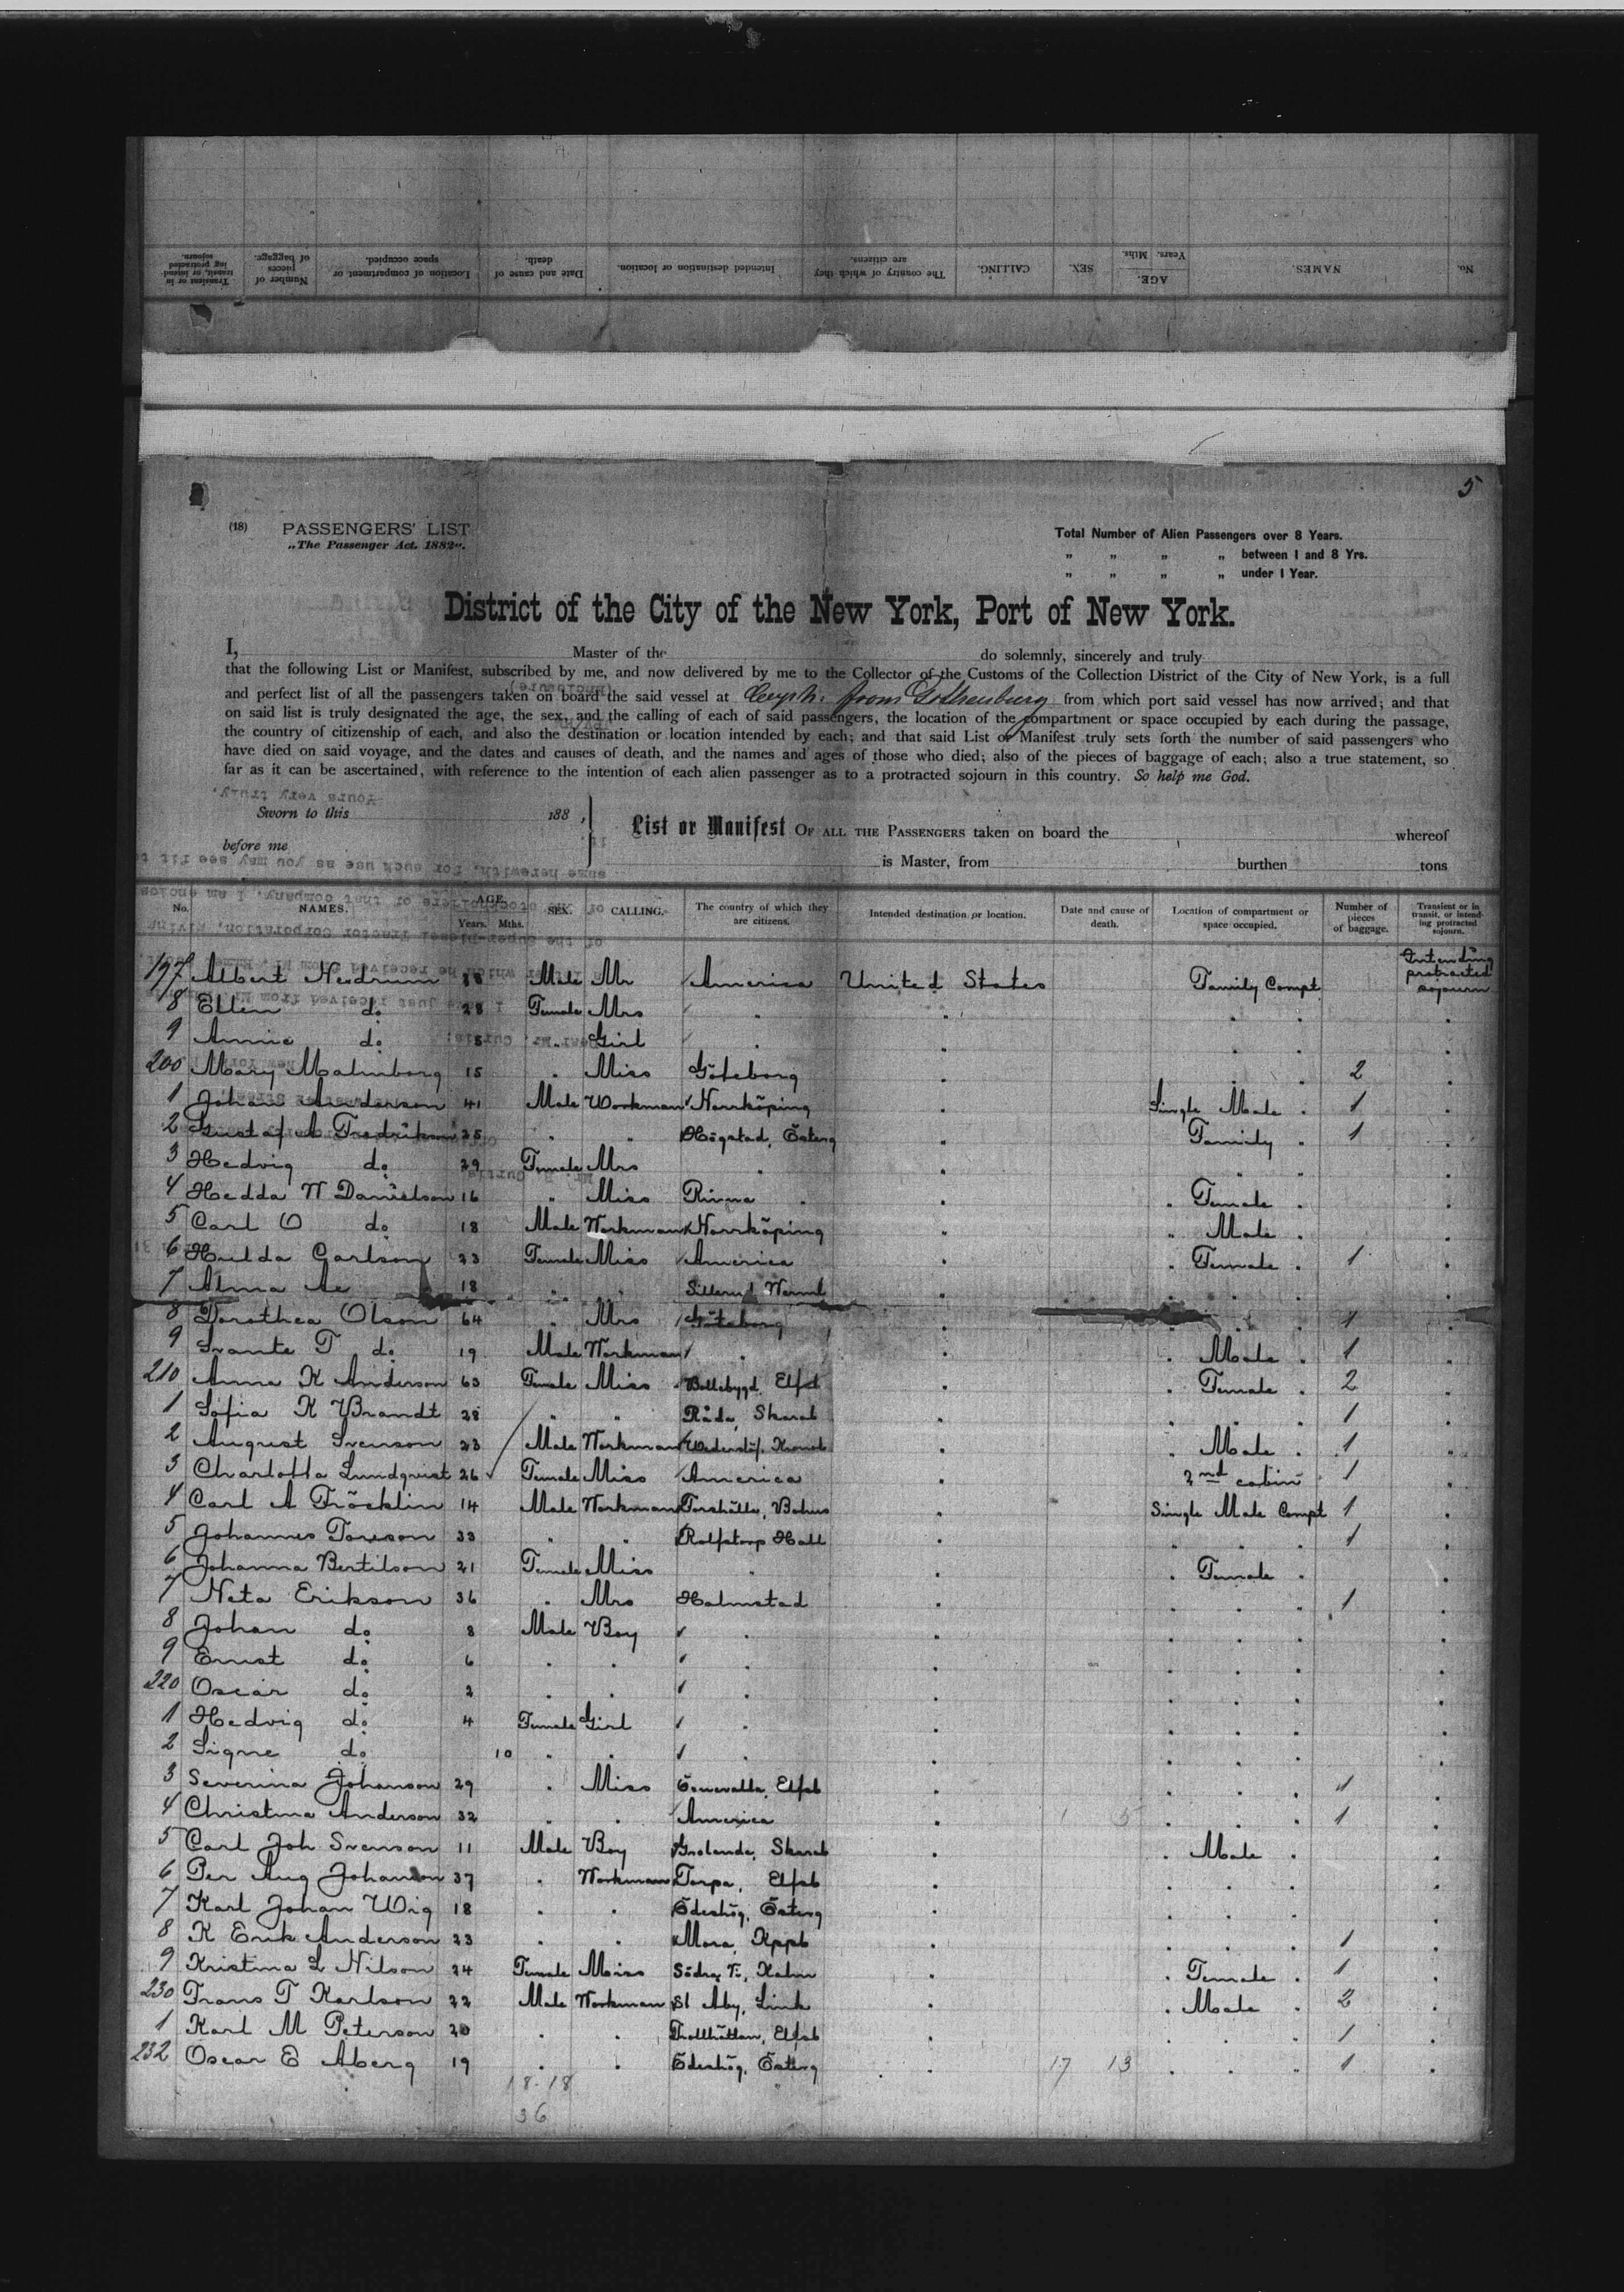 No. NAMES. AGE. Years. Mths. SEX. CALLING. The country of which they are citizens. Intended destination or location. Date and cause of death. Location of compartment or space occupied. Number of pieces of baggage. Transient or in transit, or intending protracted sojourn.
5
(18) PASSENGERS' LIST
„The Passenger Act. 1882".
Total Number of Alien Passengers over 8 Years.
„ „ „ „ between 1 and 8 Yrs.
„ „ „ „ under 1 Year.
District of the City of the New York, Port of New York.
I, Master of the do solemnly, sincerely and truly
that the following List or Manifest, subscribed by me, and now delivered by me to the Collector of the Customs of the Collection District of the City of New York, is a full
and perfect list of all the passengers taken on board the said vessel at from Gothenburg from which port said vessel has now arrived; and that
on said list is truly designated the age, the sex, and the calling of each of said passengers, the location of the compartment or space occupied by each during the passage,
the country of citizenship of each, and also the destination or location intended by each; and that said List or Manifest truly sets forth the number of said passengers who
have died on said voyage, and the dates and causes of death, and the names and ages of those who died; also of the pieces of baggage of each; also a true statement, so
far as it can be ascertained, with reference to the intention of each alien passenger as to a protracted sojourn in this country. So help me God.
Sworn to this 188 ,
before me
List or Manifest OF ALL THE PASSENGERS taken on board the whereof
is Master, from burthen tons
No. NAMES. AGE. Years. Mths. SEX. CALLING. The country of which they are citizens. Intended destination or location. Date and cause of death. Location of compartment or space occupied. Number of pieces of baggage. Transient or in transit, or intending protracted sojourn.
197 Albert Nerdrum Male Mr America United States Family Compt Intending protracted sojourn
8 Ellen do 28 Female Mrs
9 Annie do Girl
200 Mary Malmborg 15 " Miss Göteborg 2
1 Johan Anderson 41 Male Workman Norrköping Single Male " 1
2 Gustaf A Fredrikson 25 " " Högstad, Österg Family " 1
3 Hedvig do 29 Female Mrs "
4 Hedda W Danielson 16 " Miss Rinna " " Female "
5 Carl O do 18 Male Workman Norrköping " Male "
6 Hulda Carlson 23 Female Miss America " Female " 1
7 Alma 18 " " Sillerud Werml
8 Dorothea Olson 64 " Mrs Göteborg 1
9 Svante T do 19 Male Workman " " Male " 1
210 Anna K Anderson 63 Female Miss Bollebygd, Elfsb " Female " 2
1 Sofia K Brandt 28 " " Råda, Skarab 1
2 August Svenson 23 Male Workman Kronob " Male " 1
3 Charlotta Lundqvist 26 Female Miss America 2nd cabin 1
4 Carl A Fröcklin 14 Male Workman Bohus Single Male Compt 1
5 Johannes Toreson 33 " " Rolfstorp Hall 1
6 Johanna Bertilson 21 Female Miss " " Female "
7 Neta Erikson 36 " Mrs Halmstad 1
8 Johan do 8 Male Boy "
9 Ernst do 6 " " "
220 Oscar do 2 " " "
1 Hedvig do 4 Female Girl "
2 Signe do 10 " " "
3 Severina Johanson 29 " Miss Elfsb 1
4 Christina Anderson 32 " " America 1
5 Carl Joh Svenson 11 Male Boy Grolanda, Skarab " Male "
6 Per Aug Johanson 37 " Workman Torpa, Elfsb
7 Karl Johan Wig 18 " " Ödeshög, Österg
8 K Erik Anderson 23 " " Mora, Kppb 1
9 Kristina L Nilson 24 Female Miss Södra Vi, Kalm " Female " 1
230 Frans T Karlson 22 Male Workman St Åby, Link " Male " 2
1 Karl M Peterson 20 " " Trollhättan, Elfsb 1
232 Oscar E Aberg 19 " " Ödeshög, Österg 17 13 1
18-18
36